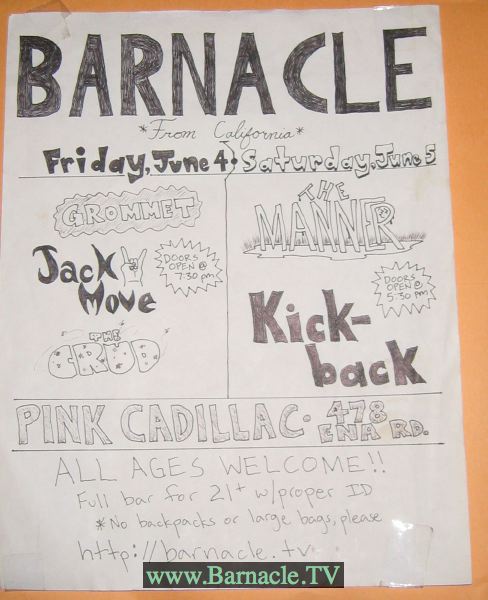 BARNACLE
*From California*
Friday, June 4 • Saturday, June 5
GROMMET
Jack Move
DOORS OPEN @ 7:30 pm
THE CRUD
THE MANNER
DOORS OPEN @ 5:30 pm
Kick-
back
PINK CADILLAC • 478 ENA RD.
ALL AGES WELCOME!!
Full bar for 21+ w/proper ID
*No backpacks or large bags, please
http://barnacle.tv
www.Barnacle.TV